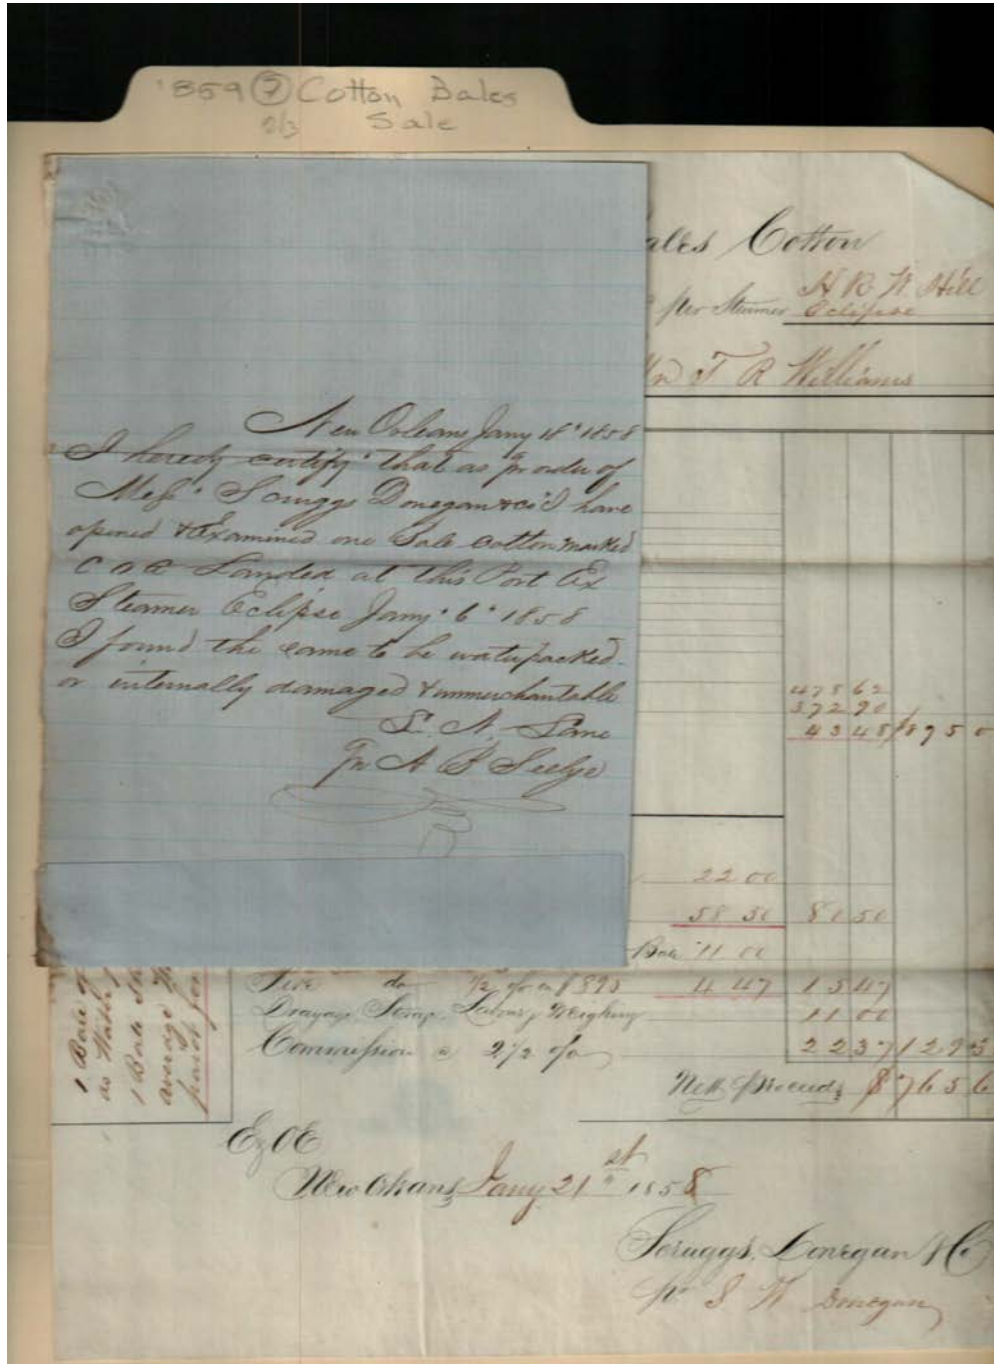 1859 (7) Cotton Bales
Sale
ales Cotton
per Steamer H R W Hill
Eclipse
T R Williams
New Orleans Jany 18" 1858
I hereby certify that as pr order of
Mess" Scruggs Donegan & co I have
opened & Examined one Bale cotton marked
Landed at this Port Ex
Steamer Eclipse Jany " 6 " 1858
I found the same to be waterpacked
or internally damaged & unmerchantable
Lane
pr A
475 62
372 90
43 48 $895 0
22 00
58 50 80 50
11 00
Fire do 1/2 % on $895 4 47 15 47
Drayage, Scrap, Labour, Weighing 11 00
Commission @ 2 1/2 % 22 37 129
Nett Proceeds $765 6
1 Bale
as Water
1 Bale
average
paid for
E&OE
New Orleans Jany 21st 1858
Scruggs, Donegan & Co
pr S W Donegan